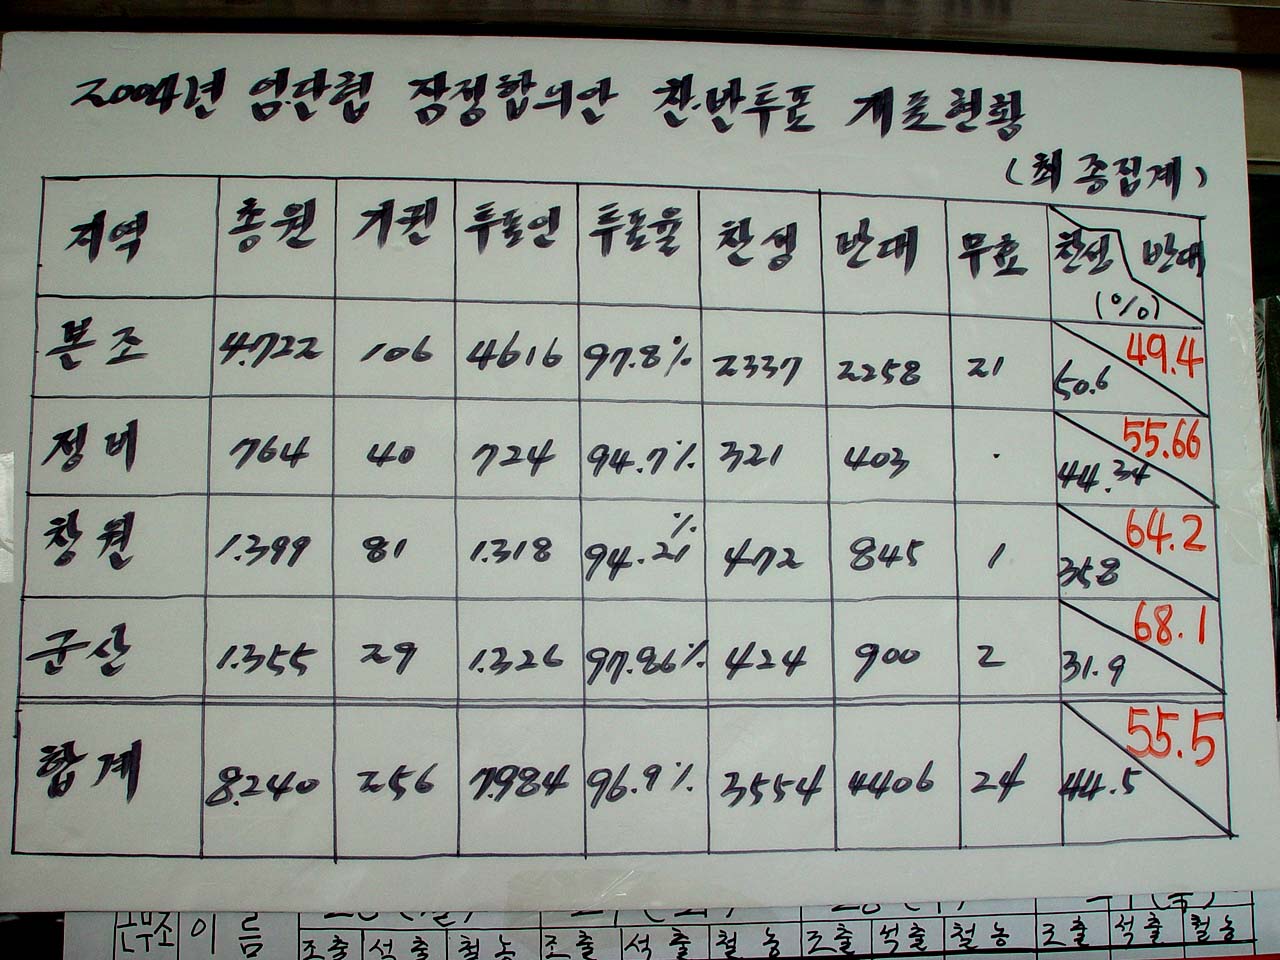 2004년 임단협 잠정합의안 찬·반투표 개표현황
(최종집계)
지역 총원 기권 투표인 투표율 찬성 반대 무효 찬성 반대 (%)
본조 4.722 106 4616 97.8% 2337 2258 21 50.6 49.4
정비 764 40 724 94.7% 321 403 · 44.34 55.66
창원 1.399 81 1.318 94.21% 472 845 1 358 64.2
군산 1.355 29 1.326 97.86% 424 900 2 31.9 68.1
합계 8.240 256 7.984 96.9% 3554 4406 24 44.5 55.5
근무조 이름
조출 석출 철농 조출 석출 철농 조출 석출 철농 조출 석출 철농